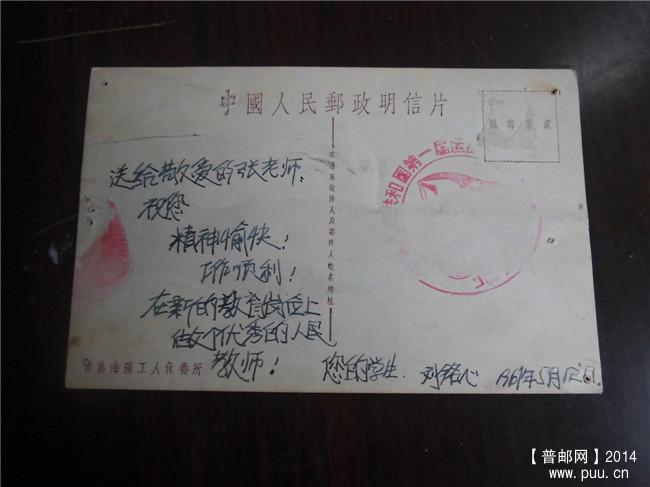 中國人民郵政明信片
貼郵票處
共和国第一届运
送给敬爱的张老师:
祝您
精神愉快!
工作顺利!
在新的教育岗位上
做个优秀的人民
教师!
您的学生 刘铭心 1961年5月12日.
青島海濱工人休養所
【普邮网】2014
www.puu.cn